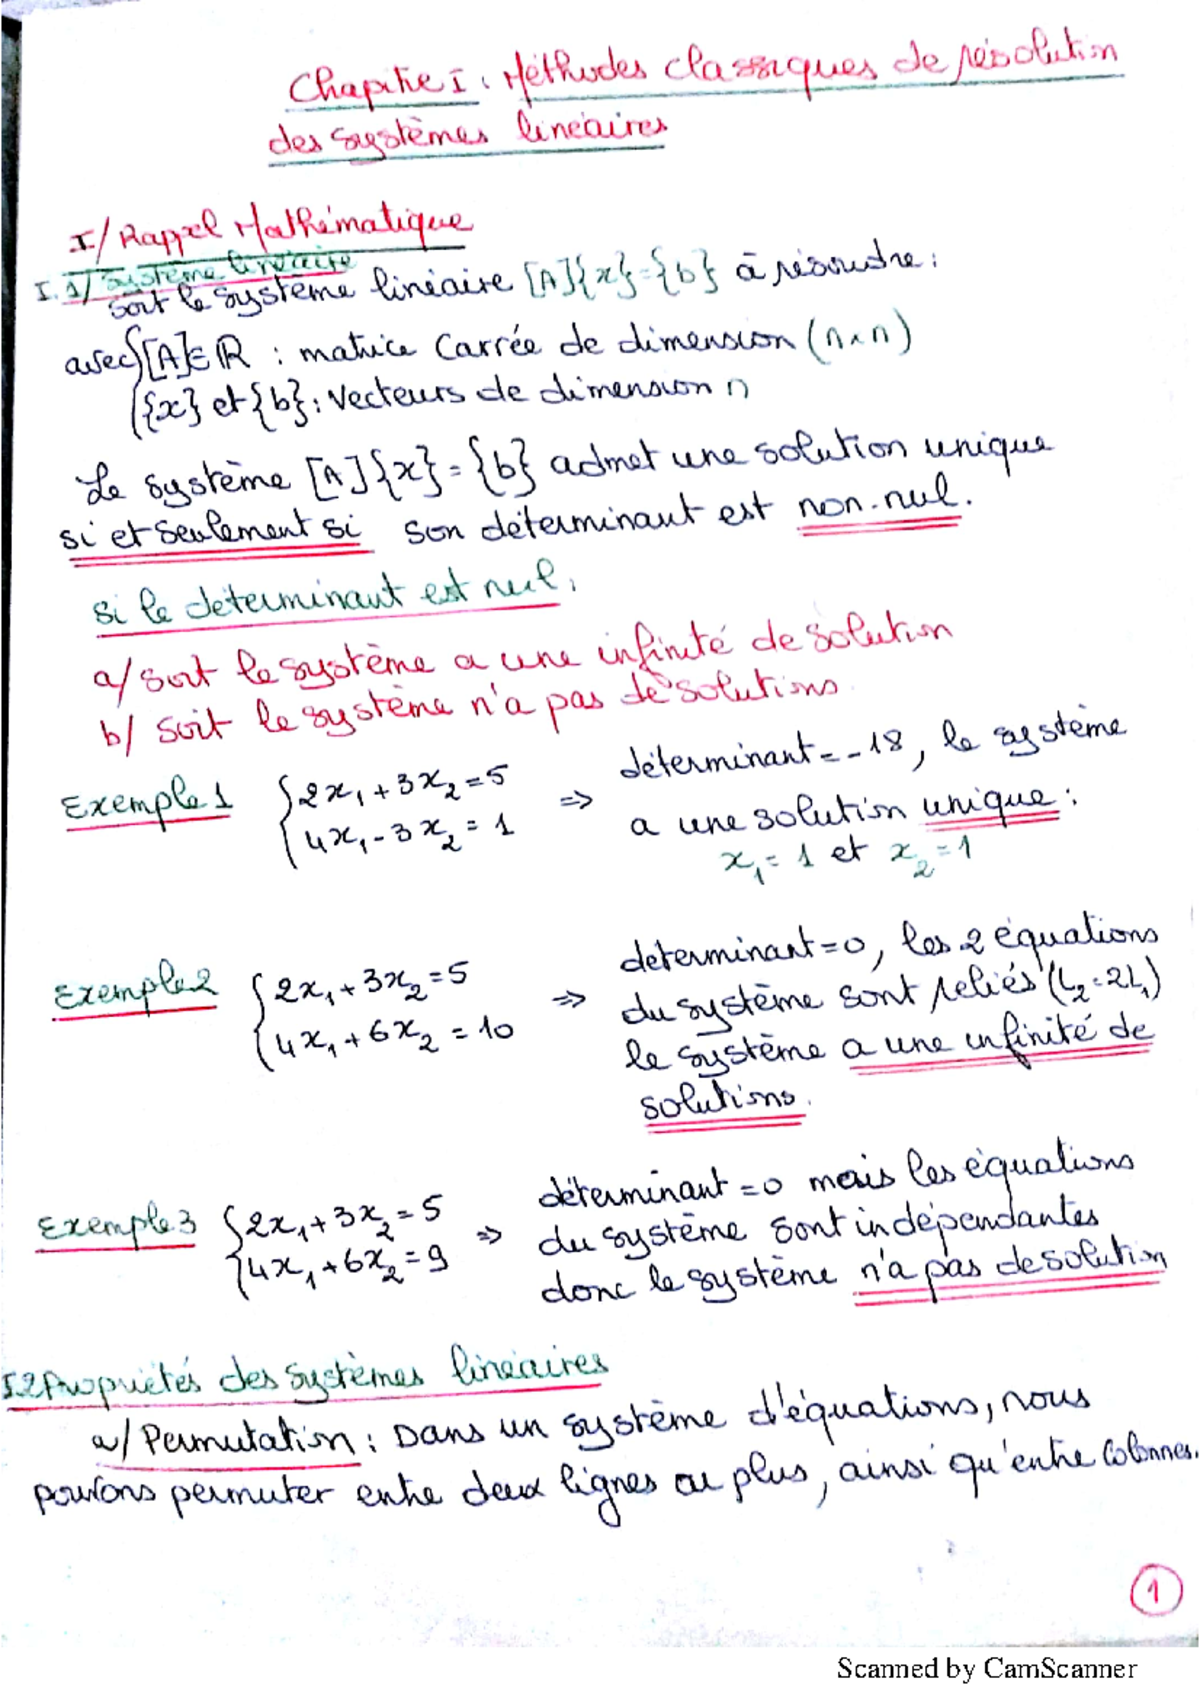 Chapitre I : Méthodes classiques de résolution
des systèmes linéaires
I/ Rappel Mathématique
I.1/ Système linéaire
soit le système linéaire [A]{x}={b} à résoudre :
avec { [A]∈ℝ : matrice carrée de dimension (n×n)
{x} et {b} : vecteurs de dimension n
Le système [A]{x}={b} admet une solution unique
si et seulement si son déterminant est non-nul.
si le déterminant est nul :
a/ soit le système a une infinité de solution
b/ soit le système n'a pas de solutions.
Exemple 1 { 2x₁+3x₂=5 ⇒ déterminant=-18, le système
4x₁-3x₂=1 a une solution unique :
x₁=1 et x₂=1
Exemple 2 { 2x₁+3x₂=5 ⇒ déterminant=0, les 2 équations
4x₁+6x₂=10 du système sont reliés (L₂=2L₁)
le système a une infinité de
solutions.
Exemple 3 { 2x₁+3x₂=5 ⇒ déterminant=0 mais les équations
4x₁+6x₂=9 du système sont indépendantes
donc le système n'a pas de solution
I.2 Propriétés des systèmes linéaires
a/ Permutation : Dans un système d'équations, nous
pouvons permuter entre deux lignes ou plus, ainsi qu'entre colonnes.
1
Scanned by CamScanner